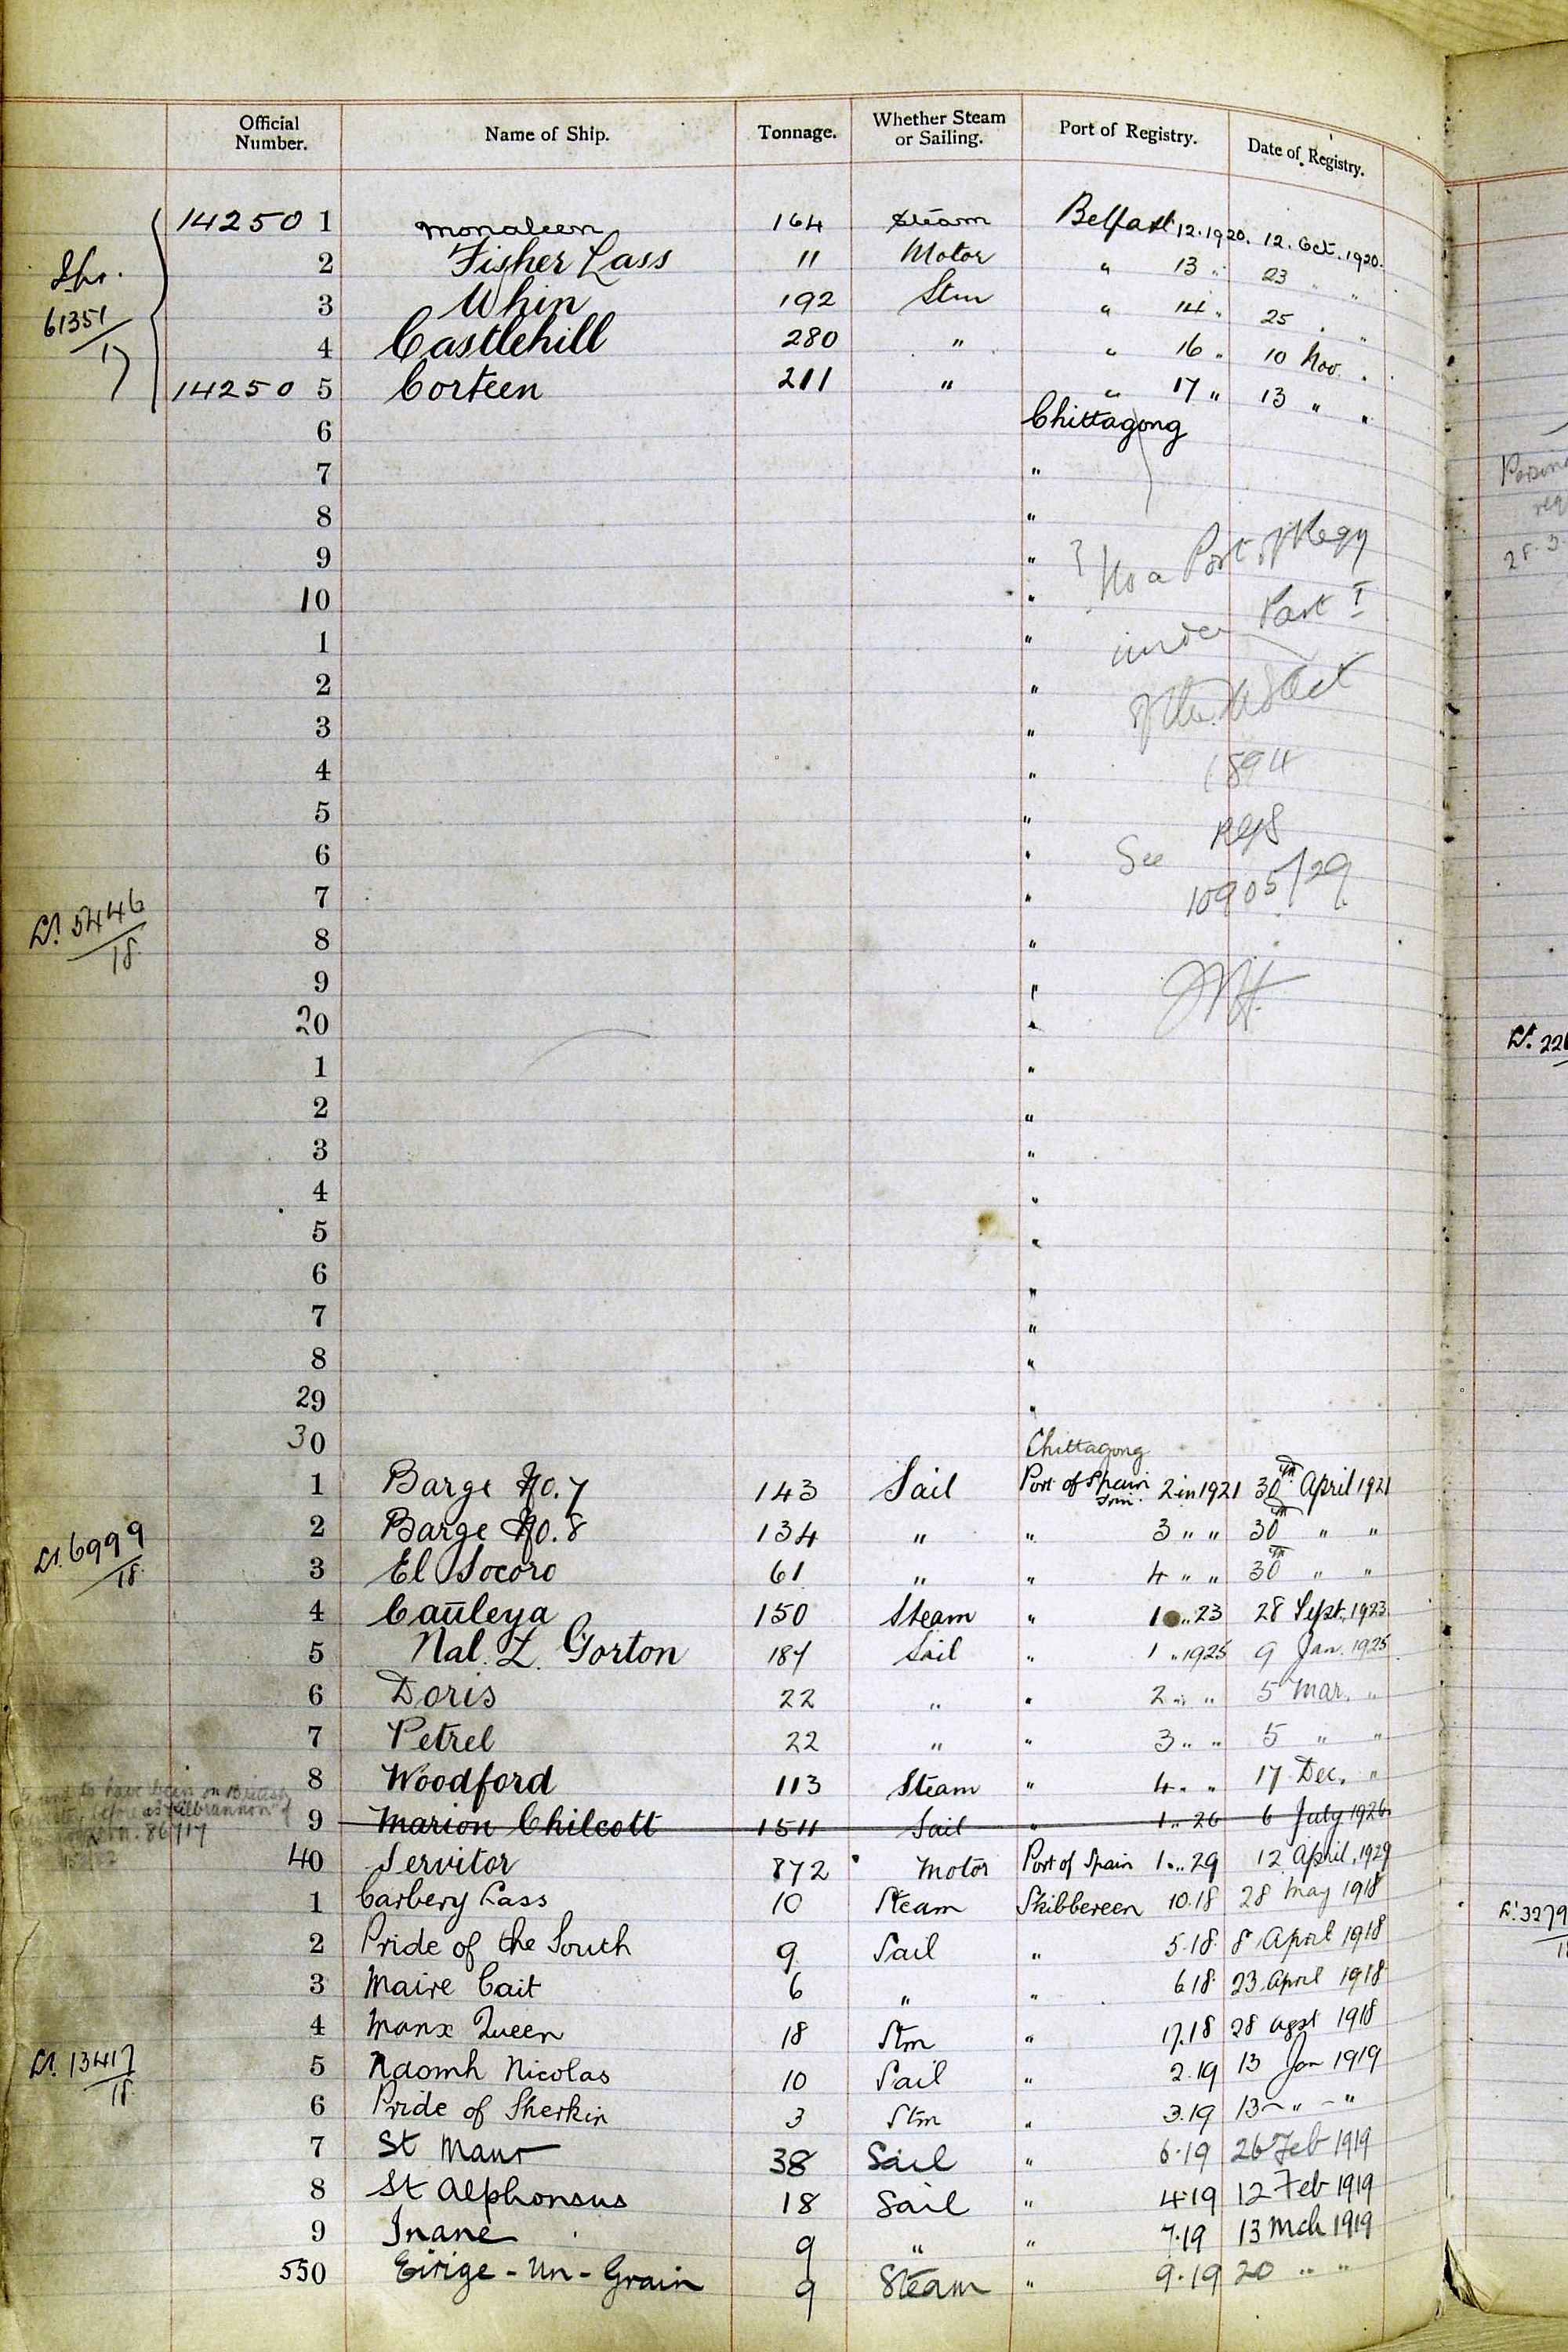 Official Number. Name of Ship. Tonnage. Whether Steam or Sailing. Port of Registry. Date of Registry.
14250 1 Monaleen 164 Steam Belfast 12.1920. 12. Oct. 1920.
2 Fisher Lass 11 Motor " 13 " 23 " "
61351/17
3 Whin 192 Stm " 14 " 25 " "
4 Castlehill 280 " " 16 " 10 Nov. "
14250 5 Corteen 211 " " 17 " 13 " "
6 Chittagong
7 "
8 "
9 " ? No a Port of Regy
10 "
1 " under Part I
2 "
3 " of the M S Act
4 " 1894
5 "
6 " See RGS
7 " 10905/29
5446/18
8 "
9 "
20 "
1 "
2 "
3 "
4 "
5 "
6 "
7 "
8 "
29 "
30 Chittagong
1 Barge No. 7 143 Sail Port of Spain Trin. 2 in 1921 30th April 1921
2 Barge No. 8 134 " " 3 " " 30th " "
6999/18
3 El Socoro 61 " " 4 " " 30th " "
4 Cauleya 150 Steam " 1 " 23 28 Sept. 1923
5 Nal. L. Gorton 187 Sail " 1 " 1925 9 Jan. 1925
6 Doris 22 " " 2 " " 5 Mar. "
7 Petrel 22 " " 3 " " 5 " "
8 Woodford 113 Steam " 4 " " 17 Dec. "
to have been on British
before as "Kilbrannon" of
86717
9 Marion Chilcott 1511 Sail " 1 " 26 6 July 1926
40 Servitor 872 Motor Port of Spain 1 " 29 12 April, 1929
1 Carbery Lass 10 Steam Skibbereen 10.18 28 May 1918
2 Pride of the South 9 Sail " 5.18 8 April 1918
3 Maire Cait 6 " " 6.18 23 April 1918
4 Manx Queen 18 Stm " 17.18 28 Agst 1918
13417/18
5 Naomh Nicolas 10 Sail " 2.19 13 Jan 1919
6 Pride of Sherkin 3 Stm " 3.19 13 " "
7 St Maur 38 Sail " 6.19 26 Feb 1919
8 St Alphonsus 18 Sail " 4.19 12 Feb 1919
9 Inane 9 " " 7.19 13 Mch 1919
550 Eirige-Un-Grain 9 Steam " 9.19 20 " "